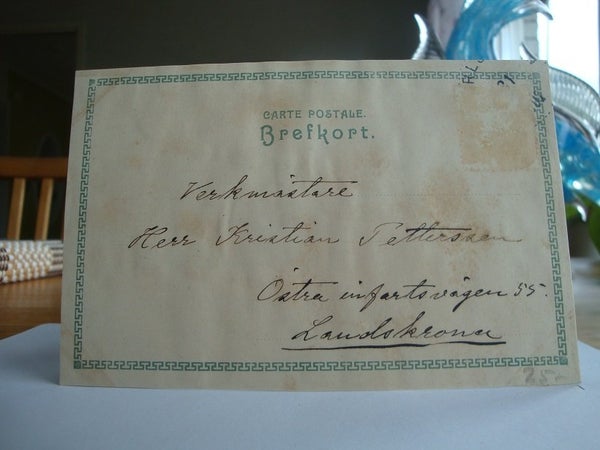 CARTE POSTALE.
Brefkort.
Verkmästare
Herr Kristian Petterssen
Östra infartsvägen 55.
Landskrona
25-